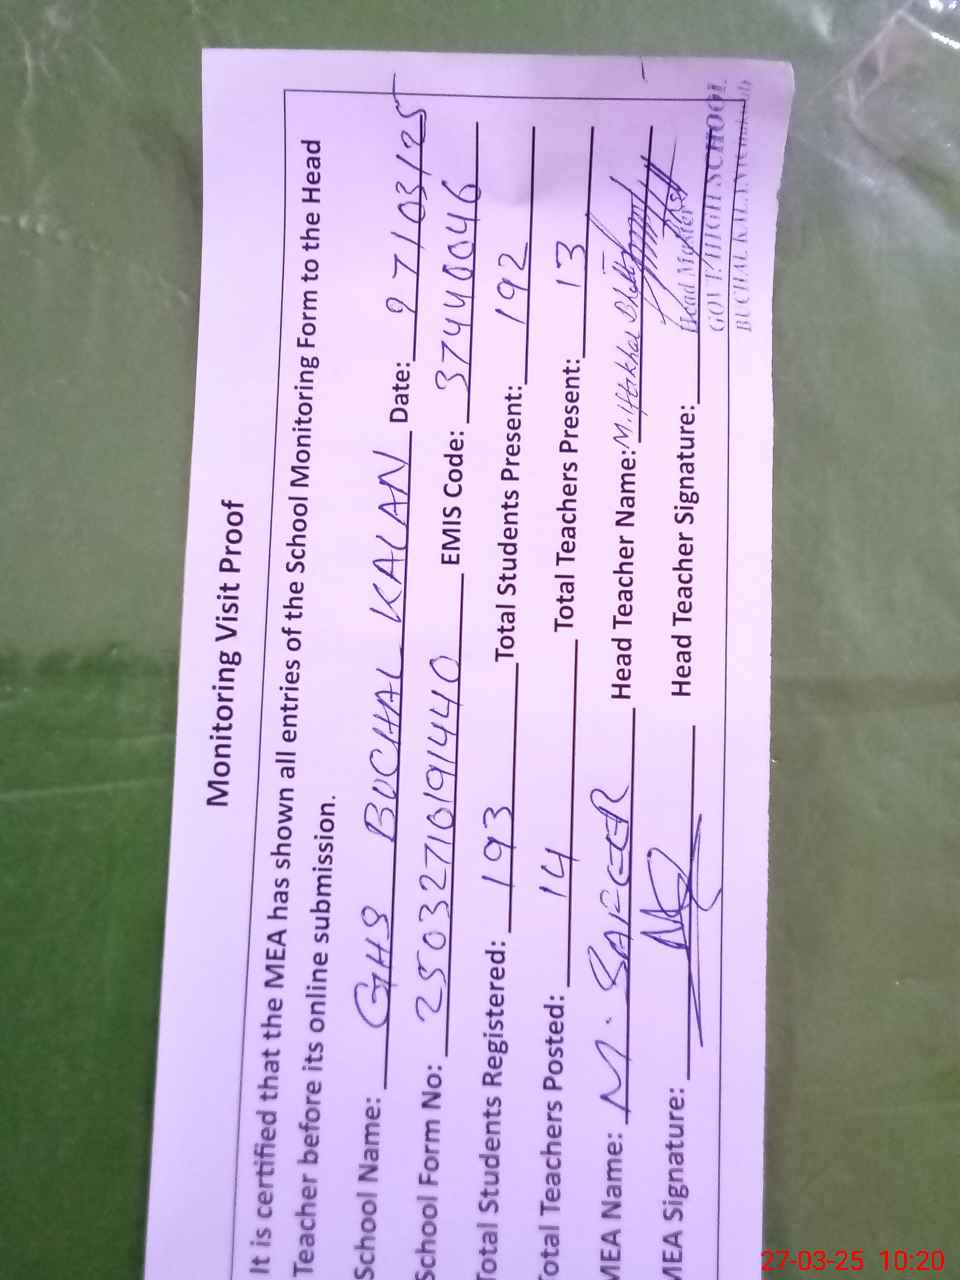 Monitoring Visit Proof
It is certified that the MEA has shown all entries of the School Monitoring Form to the Head
Teacher before its online submission.
School Name: GHS BUCHAL KALAN Date: 27/03/25
School Form No: 25032710191440 EMIS Code: 37440046
Total Students Registered: 193 Total Students Present: 192
Total Teachers Posted: 14 Total Teachers Present: 13
MEA Name: M. SAFEER Head Teacher Name: M. Iftikhar
MEA Signature: Head Teacher Signature:
Head Master
GOVT. HIGH SCHOOL
BUCHAL KALAN
27-03-25 10:20